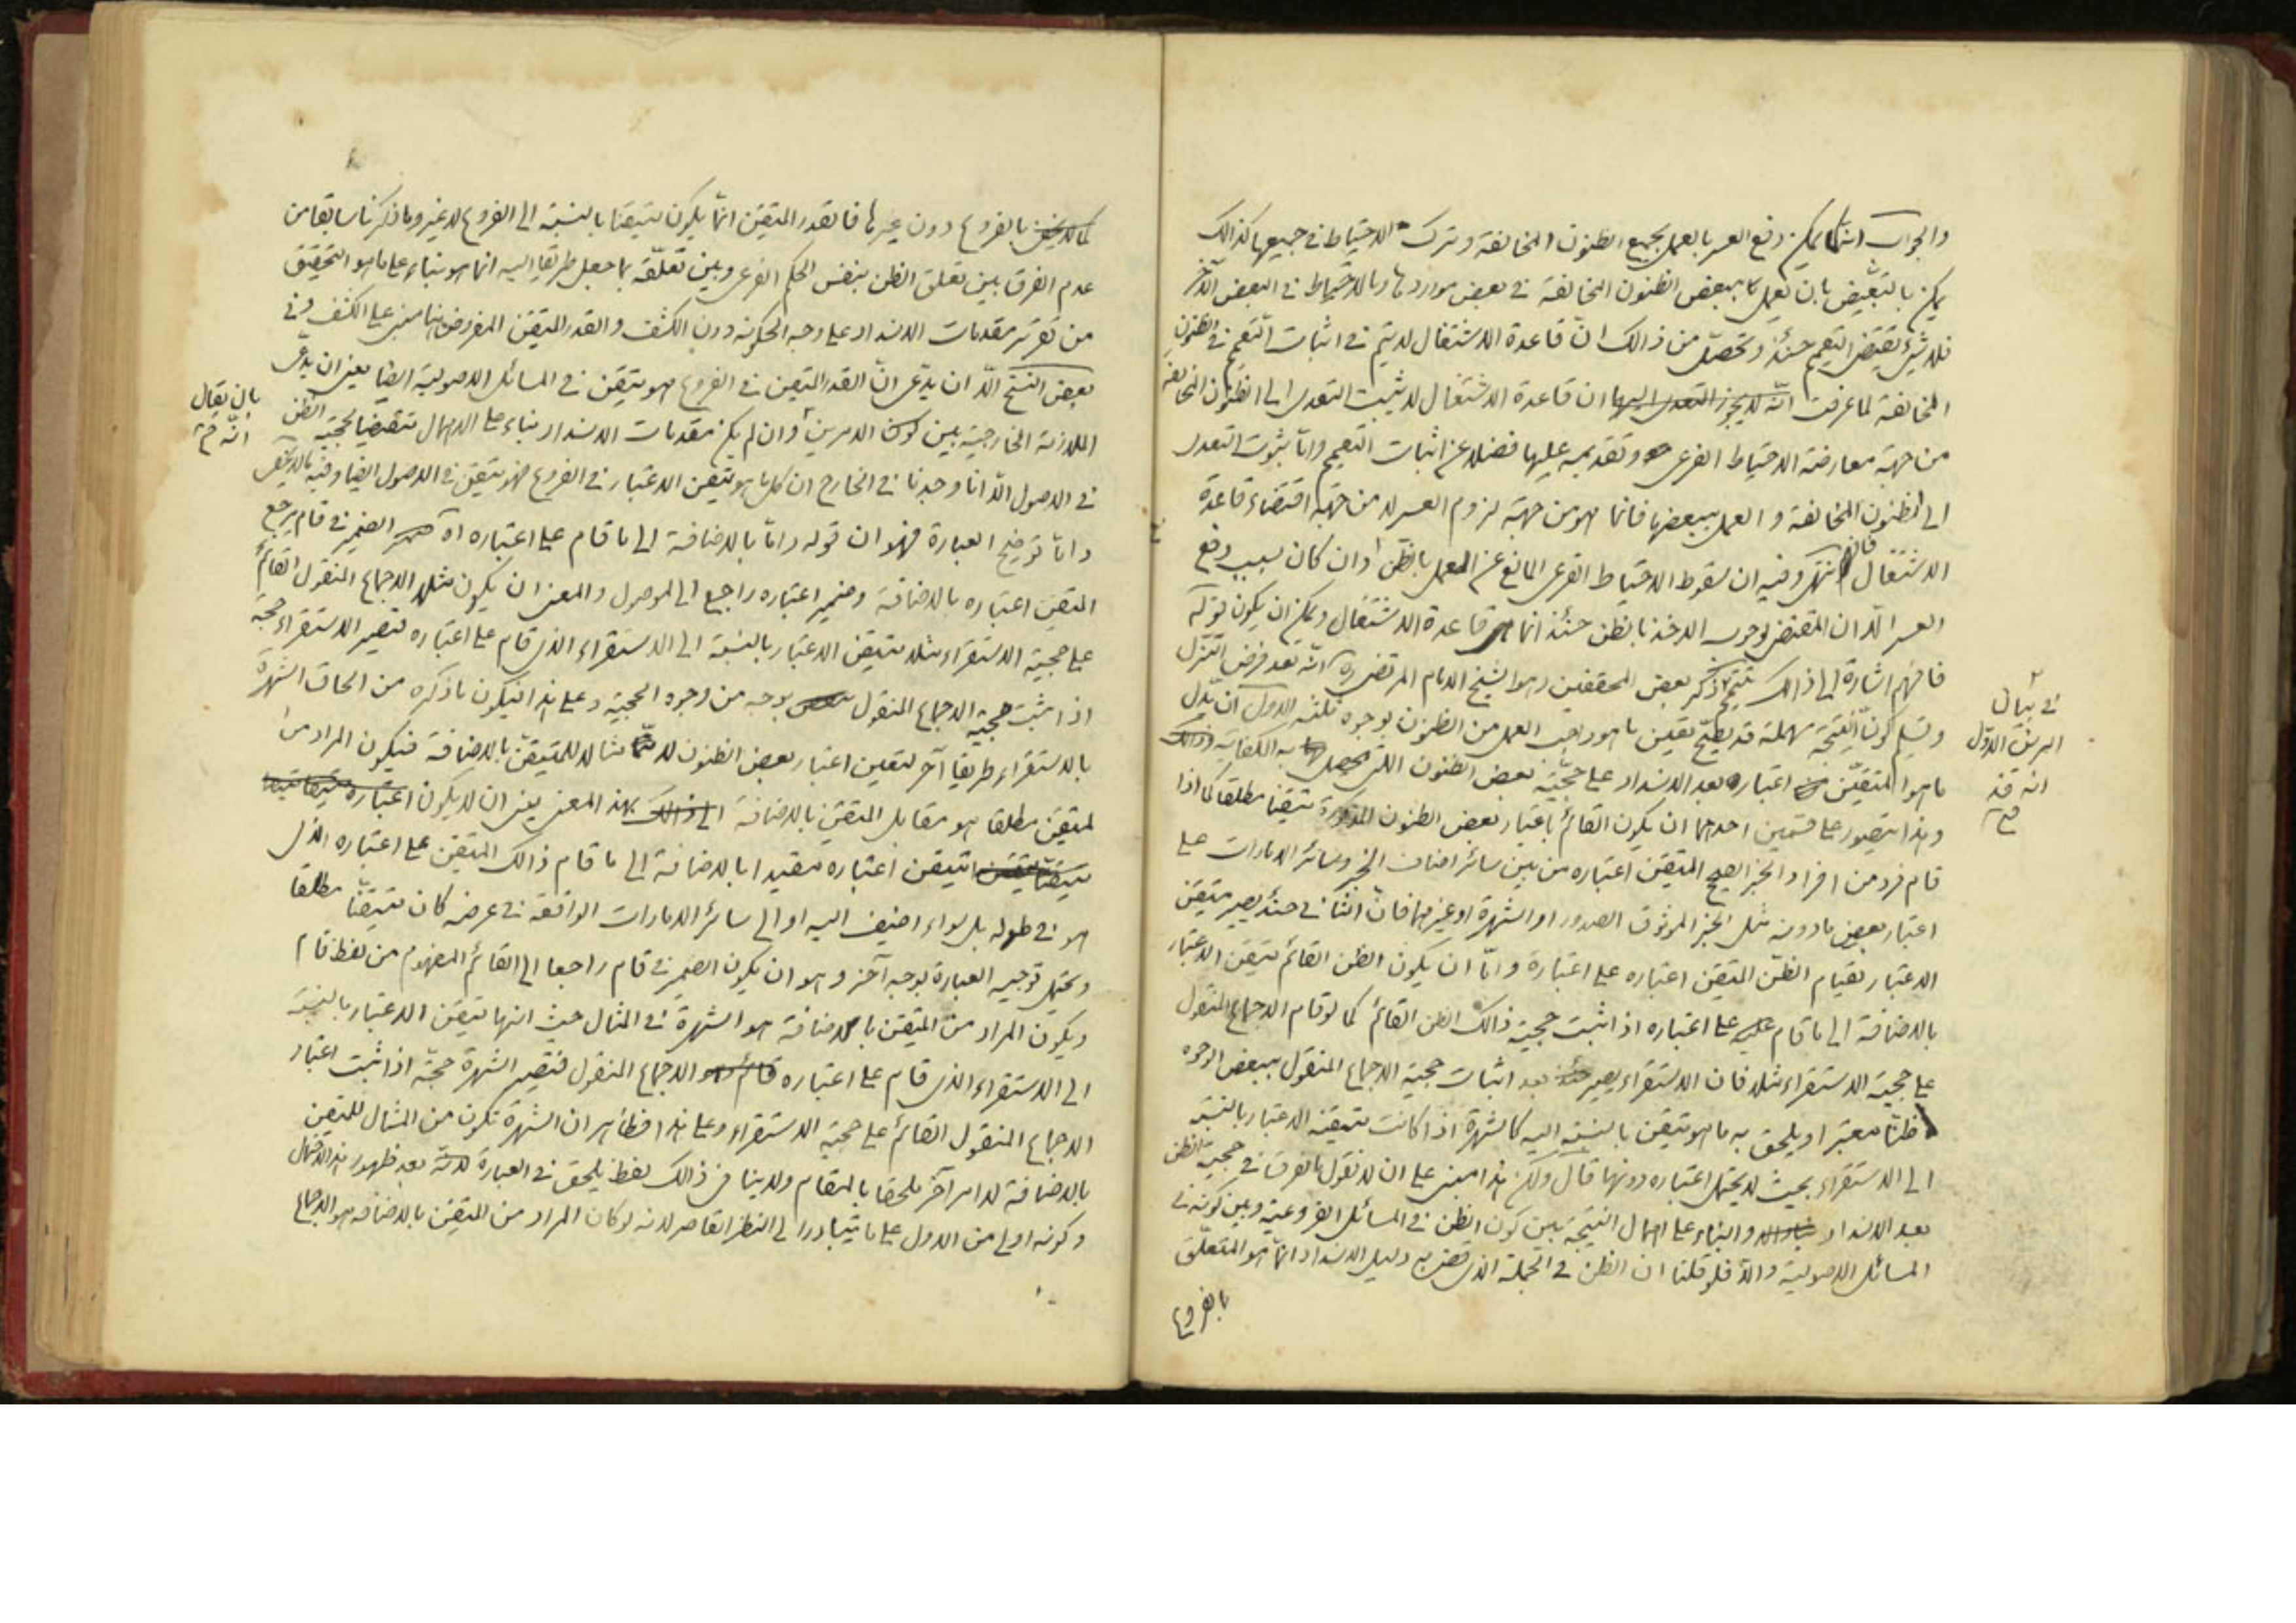 والجواب انه كما يمكن دفع العسر بالعمل بجميع الظنون المخالفة وترك الاحتياط في جميعها كذالك
يمكن بالتبعيض بان يعمل ببعض الظنون المخالفة في بعض مواردها وبالاحتياط في البعض الآخر
فلا شيء يقتضي التعميم حينئذ وتحصل من ذالك ان قاعدة الاشتغال لا يتم في اثبات التعميم في الظنون
المخالفة لما عرفت ان قاعدة الاشتغال لا يثبت التعدى الى الظنون المخالفة
من جهة معارضة الاحتياط الفرعى وتقديمه عليها فضلا عن اثبات التعميم وامّا ثبوت التعدى
الى الظنون المخالفة والعمل ببعضها فانما هو من جهة لزوم العسر لا من جهة اقتضاء قاعدة
الاشتغال فافهم انتهى وفيه ان سقوط الاحتياط الفرعى المانع عن العمل بالظن وان كان بسبب دفع
العسر الّا ان المقتضى لوجوب الاخذ بالظن حينئذ انما هو قاعدة الاشتغال ويمكن ان يكون قوله
فافهم اشارة الى ذالك ذكر بعض المحققين وهو الشيخ الامام المرتضى ره انّه بعد فرض التنزل
وتسليم كون النتيجة مهملة قد يصحّح تعيين ما هو واجب العمل من الظنون بوجوه ثلثه الاول ان يدل
ما هو المتيقّن اعتباره بعد الانسداد على حجّيّة بعض الظنون التى يحصل به الكفاية
وهذا يتصور على قسمين احدهما ان يكون القائم باعتبار بعض الظنون المذكورة متيقنا مطلقا كما اذا
قام فرد من افراد الخبر الصحيح المتيقن اعتباره من بين سائر اصناف الخبر وسائر الامارات على
اعتبار بعض ما دونه مثل الخبر الموثوق الصدور او الشهرة او غيرهما فانّ الثانى حينئذ يصير متيقن
الاعتبار بقيام الظنّ المتيقن اعتباره على اعتباره وامّا ان يكون الظن القائم متيقن الاعتبار
بالاضافة الى ما قام على اعتباره اذا ثبت حجية ذالك الظن القائم كما لو قام الاجماع المنقول
على حجية الاستقراء مثلا فان الاستقراء يصير بعد اثبات حجية الاجماع المنقول ببعض الوجوه
ظنّا معتبرا ويلحق به ما هو متيقن بالنسبة اليه كالشهرة اذا كانت متيقنة الاعتبار بالنسبة
الى الاستقراء بحيث لا يحتمل اعتباره دونها قال ولكن هذا مبنى على ان لا نقول بالفرق في حجية الظن
بعد الانسداد والبناء على اهمال النتيجة بين كون الظن في المسائل الفروعية وبين كونه في
المسائل الاصولية والّا فلو قلنا ان الظن في الجملة الذى قضى به دليل الانسداد انّما هو المتعلق
بالفروع
في بيان
الوجه الاوّل
انه قد
بالفروع دون غيرها فالقدر المتيقن انّما يكون متيقنا بالنسبة الى الفروع لا غير وما ذكرنا سابقا من
عدم الفرق بين تعلق الظن بنفس الحكم الفرعى وبين تعلّقه بما جعل طريقا اليه انما هو بناء على ما هو التحقيق
من تقرير مقدمات الانسداد على وجه الحكومة دون الكشف والقدر المتيقن المفروض هنا مبنى على الكشف وفي
بعض النسخ الّا ان يدّعى انّ القدر المتيقن في الفروع هو متيقن في المسائل الاصولية ايضا يعنى ان يدّعى
الملازمة الخارجية بين كون الامرين وان لم يكن مقدمات الانسداد بناء على الاهمال مقتضيا لحجية الظن
بان يقال
انّه
في الاصول الّا انا وجدنا في الخارج ان كل ما هو متيقن الاعتبار في الفروع فهو متيقن في الاصول ايضا وفيه ما لا يخفى
وامّا توضيح العبارة فهو ان قوله وامّا بالاضافة الى ما قام على اعتباره اه الضمير في قام يرجع
المتيقن اعتباره بالاضافة وضمير اعتباره راجع الى الموصول والمعنى ان يكون مثلا الاجماع المنقول القائم
على حجية الاستقراء مثلا متيقن الاعتبار بالنسبة الى الاستقراء الذى قام على اعتباره فيصير الاستقراء حجة
اذا ثبت حجية الاجماع المنقول بوجه من وجوه الحجية وعلى هذا فيكون ما ذكره من الحاق الشهرة
بالاستقراء طريقا آخر لتعيين اعتبار بعض الظنون لا مثالا للمتيقن بالاضافة فيكون المراد من
المتيقن مطلقا هو مقابل المتيقن بالاضافة بهذا المعنى يعنى ان لا يكون
متيقن اعتباره مقيدا بالاضافة الى ما قام ذالك المتيقن على اعتباره الذى
هو في طوله بل سواء اضيف اليه او الى سائر الامارات الواقعة في عرضه كان متيقنا مطلقا
ويحتمل توجيه العبارة بوجه آخر وهو ان يكون الضمير في قام راجعا الى القائم المفهوم من لفظ قام
ويكون المراد من المتيقن بالاضافة هو الشهرة في المثال حيث انها متيقن الاعتبار بالنسبة
الى الاستقراء الذى قام على اعتباره الاجماع المنقول فتصير الشهرة حجّة اذا ثبت اعتبار
الاجماع المنقول القائم على حجية الاستقراء وعلى هذا فظاهر ان الشهرة تكون من المثال للمتيقن
بالاضافة لا امر آخر ملحقا بالمقام ولا ينافى ذالك لفظ يلحق في العبارة لانّه بعد ظهور هذا الاحتمال
وكونه اولى من الاول على ما يتبادر الى النظر القاصر لانه لو كان المراد من المتيقن بالاضافة هو الاجماع